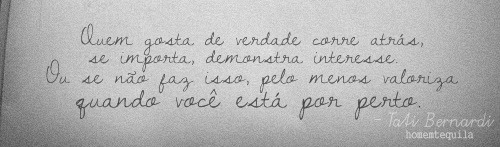 Quem gosta de verdade corre atrás,
se importa, demonstra interesse.
Ou se não faz isso, pelo menos valoriza
quando você está por perto.
Tati Bernardi
homemtequila